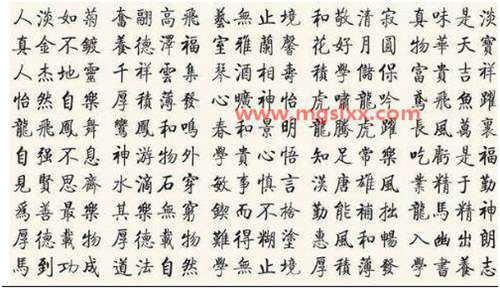 人淡如菊 奮翮高飛 藝無止境 和敬清寂 真味是淡
真金不鍍 養德澤福 室雅蘭馨 花好月圓 物華天寶
人杰地靈 千祥雲集 琴酒相壽 積學儲保 富貴吉祥
怡然自樂 厚積薄發 心曠神怡 虎嘯龍吟 鳶飛魚躍
www.mgslxx.com
龍飛鳳舞 鸞鳳和鳴 春和景明 龍騰虎躍 長風萬裏
自强不息 神游物外 學貴心悟 知足常樂 吃虧是福
見賢思齊 水滴石穿 敏事慎言 漢唐雄風 業精於勤
爲善最樂 其樂無窮 鍥而不捨 勤能補拙 龍馬精神
厚德載物 厚德載物 難得糊塗 惠風和暢 入幽出朗
馬到功成 道法自然 學無止境 厚積薄發 學書養志